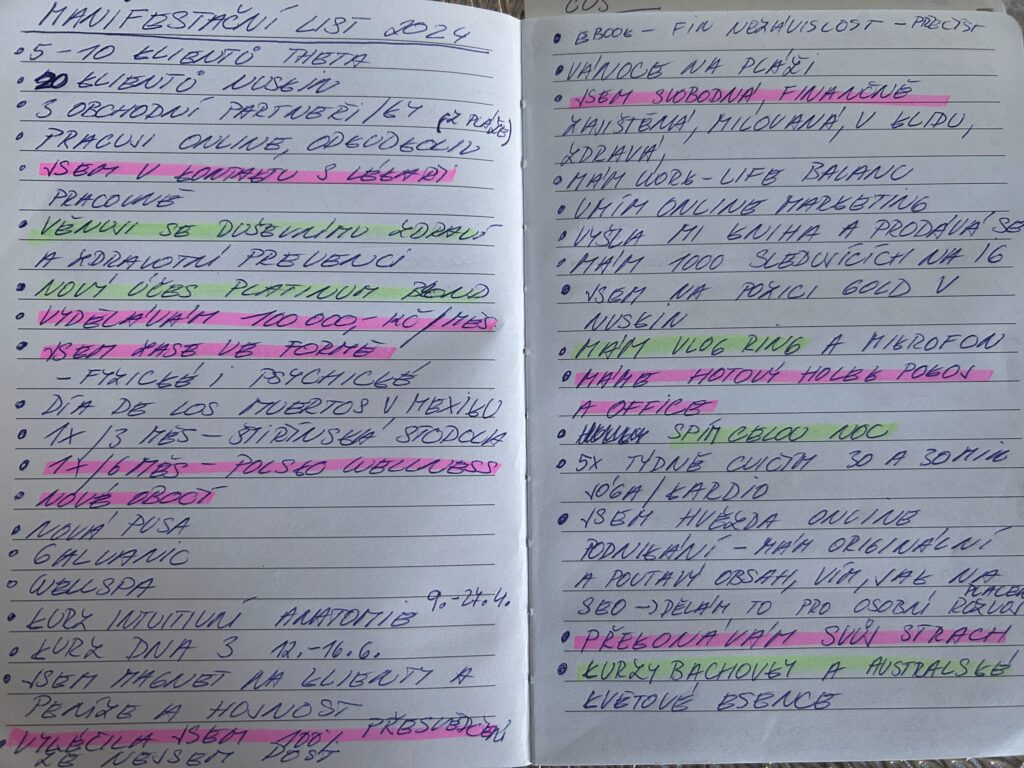 MANIFESTAČNÍ LIST 2024
• 5-10 KLIENTŮ THETA
• 20 KLIENTŮ NUSKIN
• 3 OBCHODNÍ PARTNEŘI/LY
• PRACUJI ONLINE, ODKUDKOLIV (Z PLÁŽE)
• JSEM V KONTAKTU S LÉKAŘI
PRACOVNĚ
• VĚNUJI SE DUŠEVNÍMU ZDRAVÍ
A ZDRAVOTNÍ PREVENCI
• NOVÝ ÚČES PLATINUM BLOND
• VYDĚLÁVÁM 100 000,- KČ/MĚS.
• JSEM ZASE VE FORMĚ
- FYZICKÉ I PSYCHICKÉ
• DÍA DE LOS MUERTOS V MEXIKU
• 1X/3 MĚS - ŠTIŘÍNSKÁ STODOLA
• 1X/6 MĚS - POLSKO WELLNESS
• NOVÉ OBOČÍ
• NOVÁ PUSA
• GALVANIC
• WELLSPA
• KURZ INTUITIVNÍ ANATOMIE 9.-27.4.
• KURZ DNA 3 12.-16.6.
• JSEM MAGNET NA KLIENTY A
PENÍZE A HOJNOST
• VYLÉČILA JSEM 100% PŘESVĚDČENÍ
ŽE NEJSEM DOST
COS
• EBOOK - FIN NEZÁVISLOST - PŘEČÍST
• VÁNOCE NA PLÁŽI
• JSEM SVOBODNÁ, FINANČNĚ
ZAJIŠTĚNÁ, MILOVANÁ, V KLIDU,
ZDRAVÁ,
• MÁM WORK-LIFE BALANC
• UMÍM ONLINE MARKETING
• VYŠLA MI KNIHA A PRODÁVÁ SE
• MÁM 1000 SLEDUJÍCÍCH NA IG
• JSEM NA POZICI GOLD V
NUSKIN
• MÁM VLOG RING A MIKROFON
• MÁME HOTOVÝ HOLEK POKOJ
A OFFICE
• SPÍM CELOU NOC
• 5X TÝDNĚ CVIČÍM 30 A 30 MIN
JÓGA/KARDIO
• JSEM HVĚZDA ONLINE
PODNIKÁNÍ - MÁM ORIGINÁLNÍ
A POUTAVÝ OBSAH, VÍM, JAK NA
SEO -> DĚLÁM TO PRO OSOBNÍ ROZVOJ
• PŘEKONÁVÁM SVŮJ STRACH
• KURZY BACHOVKY A AUSTRALSKÉ
KVĚTOVÉ ESENCE